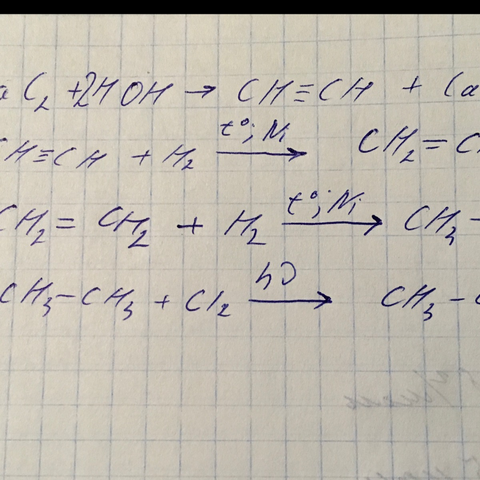 aC₂ + 2HOH → CH≡CH + Ca
CH≡CH + H₂ t°; Ni → CH₂=C
CH₂=CH₂ + H₂ t°; Ni → CH₃–
CH₃–CH₃ + Cl₂ hν → CH₃–C